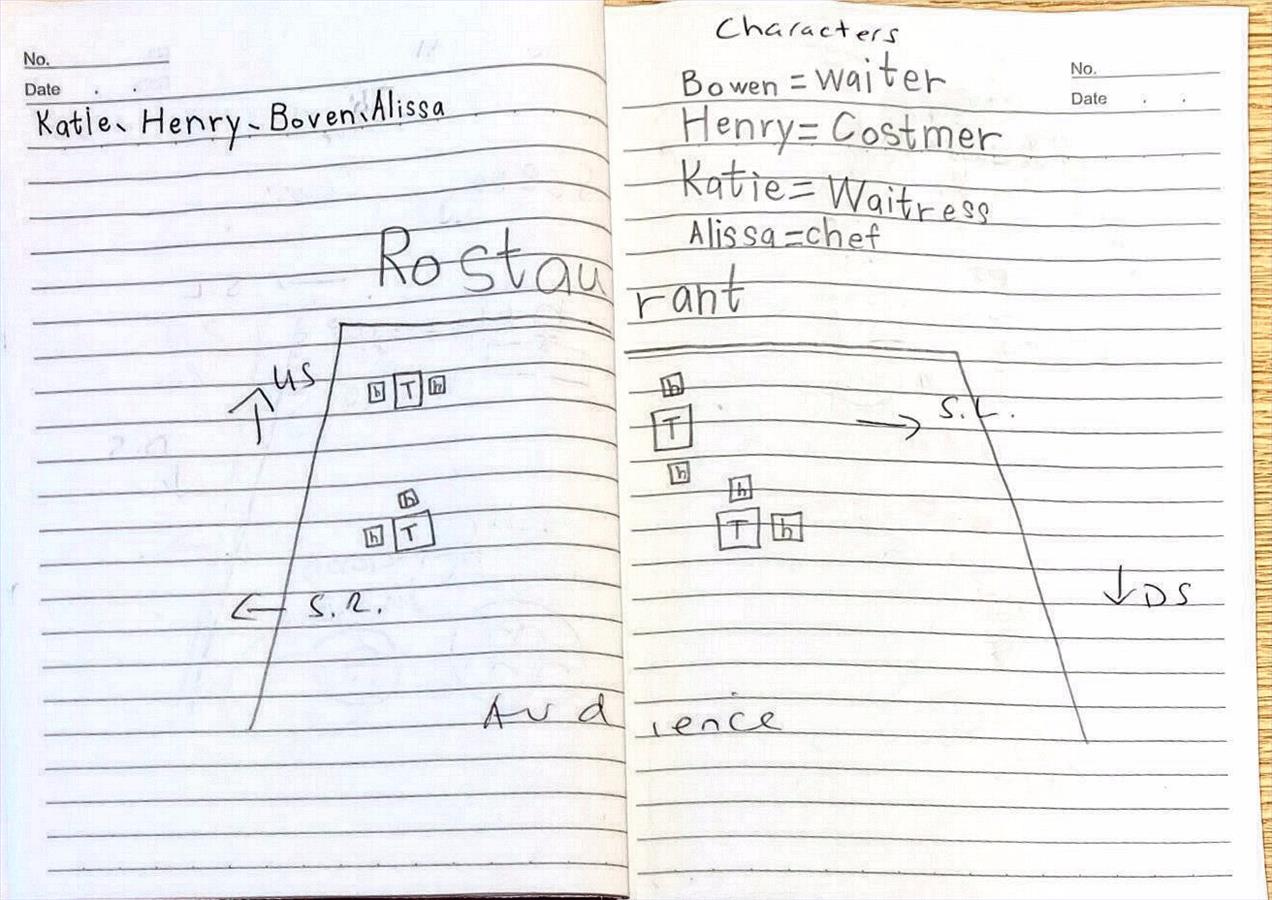 No.
Date . .
Katie、Henry、Boven、Alissa
Characters
No.
Date . .
Bowen = waiter
Henry = Costmer
Katie = Waitress
Alissa = chef
Rostaurant
US
h T h
h
h T
S.R.
h
T
h
S.L.
h
T h
DS
Audience